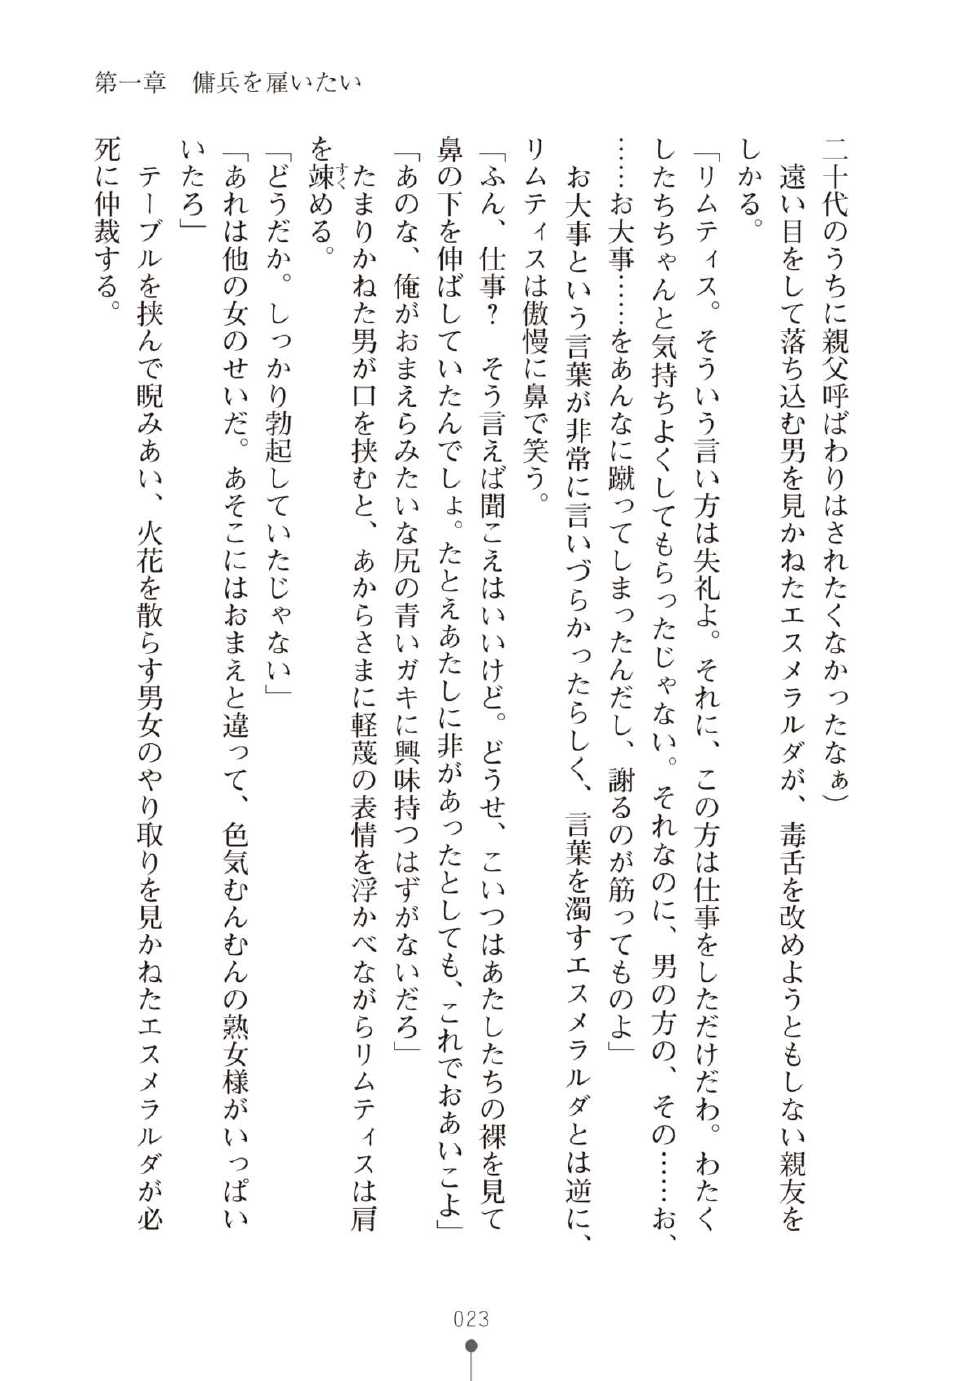 第一章　傭兵を雇いたい
二十代のうちに親父呼ばわりはされたくなかったなぁ）
　遠い目をして落ち込む男を見かねたエスメラルダが、毒舌を改めようともしない親友を
しかる。
「リムティス。そういう言い方は失礼よ。それに、この方は仕事をしただけだわ。わたく
したちちゃんと気持ちよくしてもらったじゃない。それなのに、男の方の、その……お、
……お大事……をあんなに蹴ってしまったんだし、謝るのが筋ってものよ」
　お大事という言葉が非常に言いづらかったらしく、言葉を濁すエスメラルダとは逆に、
リムティスは傲慢に鼻で笑う。
「ふん、仕事？　そう言えば聞こえはいいけど。どうせ、こいつはあたしたちの裸を見て
鼻の下を伸ばしていたんでしょ。たとえあたしに非があったとしても、これでおあいこよ」
「あのな、俺がおまえらみたいな尻の青いガキに興味持つはずがないだろ」
　たまりかねた男が口を挟むと、あからさまに軽蔑の表情を浮かべながらリムティスは肩
を竦める。
すく
「どうだか。しっかり勃起していたじゃない」
「あれは他の女のせいだ。あそこにはおまえと違って、色気むんむんの熟女様がいっぱい
いたろ」
　テーブルを挟んで睨みあい、火花を散らす男女のやり取りを見かねたエスメラルダが必
死に仲裁する。
023